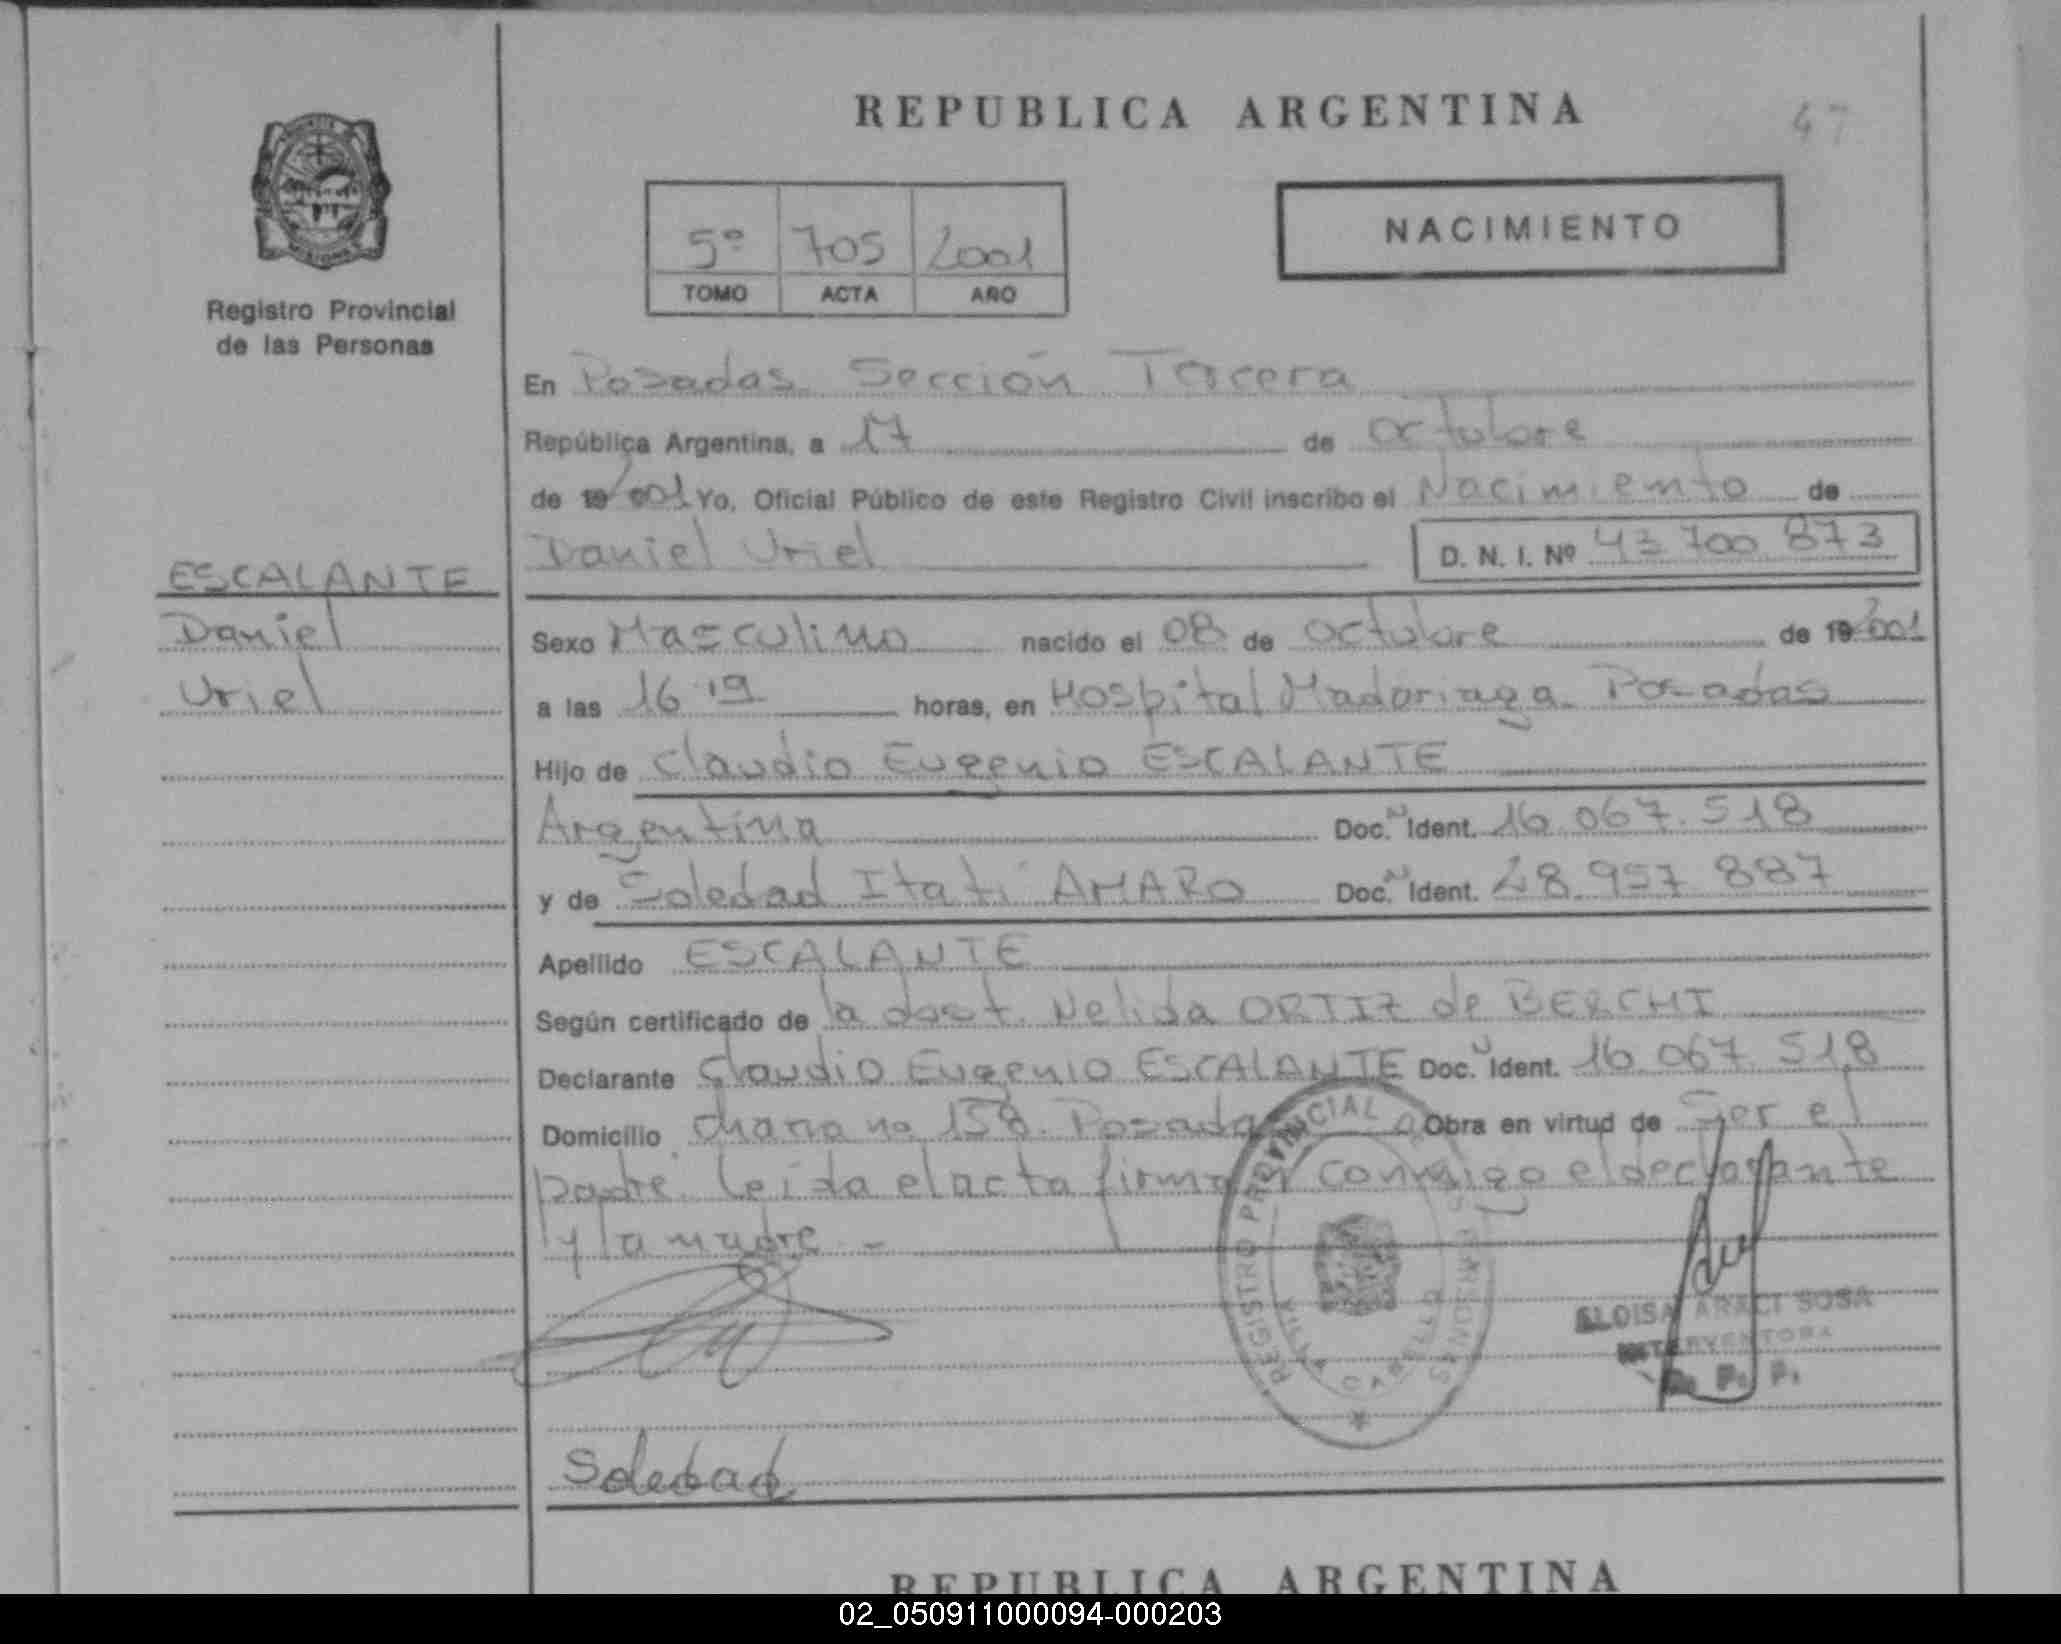 REPUBLICA ARGENTINA
47
Registro Provincial
de las Personas
5º 705 2001
TOMO ACTA AÑO
NACIMIENTO
En Posadas Sección Tercera
República Argentina, a 17 de octubre
de 19 2001 Yo, Oficial Público de este Registro Civil inscribo el Nacimiento de
Daniel Uriel D. N. I. Nº 43 700 873
ESCALANTE
Daniel
Uriel
Sexo Masculino nacido el 08 de octubre de 19 2001
a las 16 19 horas, en Hospital Madariaga Posadas
Hijo de Claudio Eugenio ESCALANTE
Argentina Doc. N Ident. 16 067.518
y de Soledad Itatí AMARO Doc. N Ident. 28.957 887
Apellido ESCALANTE
Según certificado de la doct. Nelida ORTIZ de BERCHI
Declarante Claudio Eugenio ESCALANTE Doc. N Ident. 16 067 518
Domicilio 158. Posadas Obra en virtud de Ser el
padre. Leída el acta firman conmigo el declarante
y la madre -
REGISTRO PROVINCIAL DE LAS PERSONAS
VILLA CABELLO
ELOISA ARACI SOSA
INTERVENTORA
R. P. P.
Soledad
REPUBLICA ARGENTINA
02_050911000094-000203